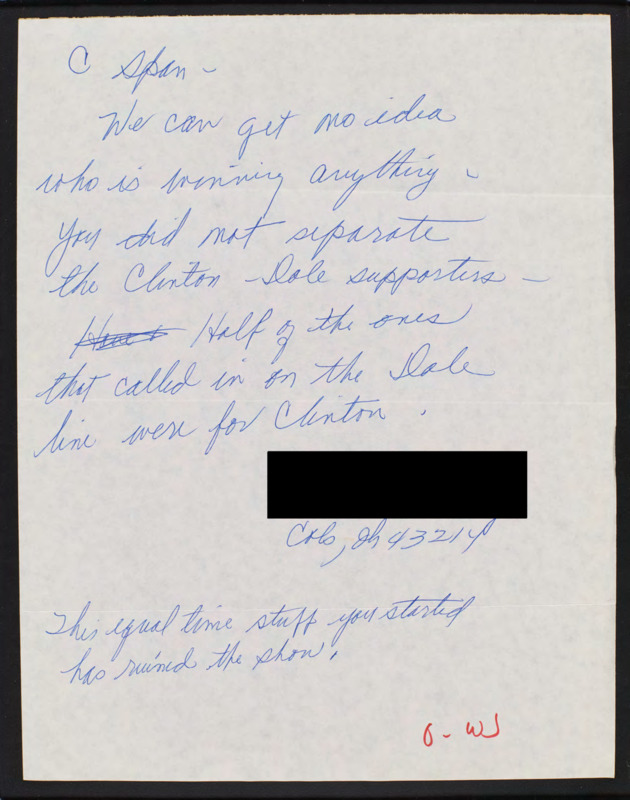 C Span -
We can get no idea
who is winning anything -
You did not separate
the Clinton - Dole supporters -
Half of the ones
that called in on the Dole
line were for Clinton.
Cols, Oh 43214
This equal time stuff you started
has ruined the show.
O - WJ